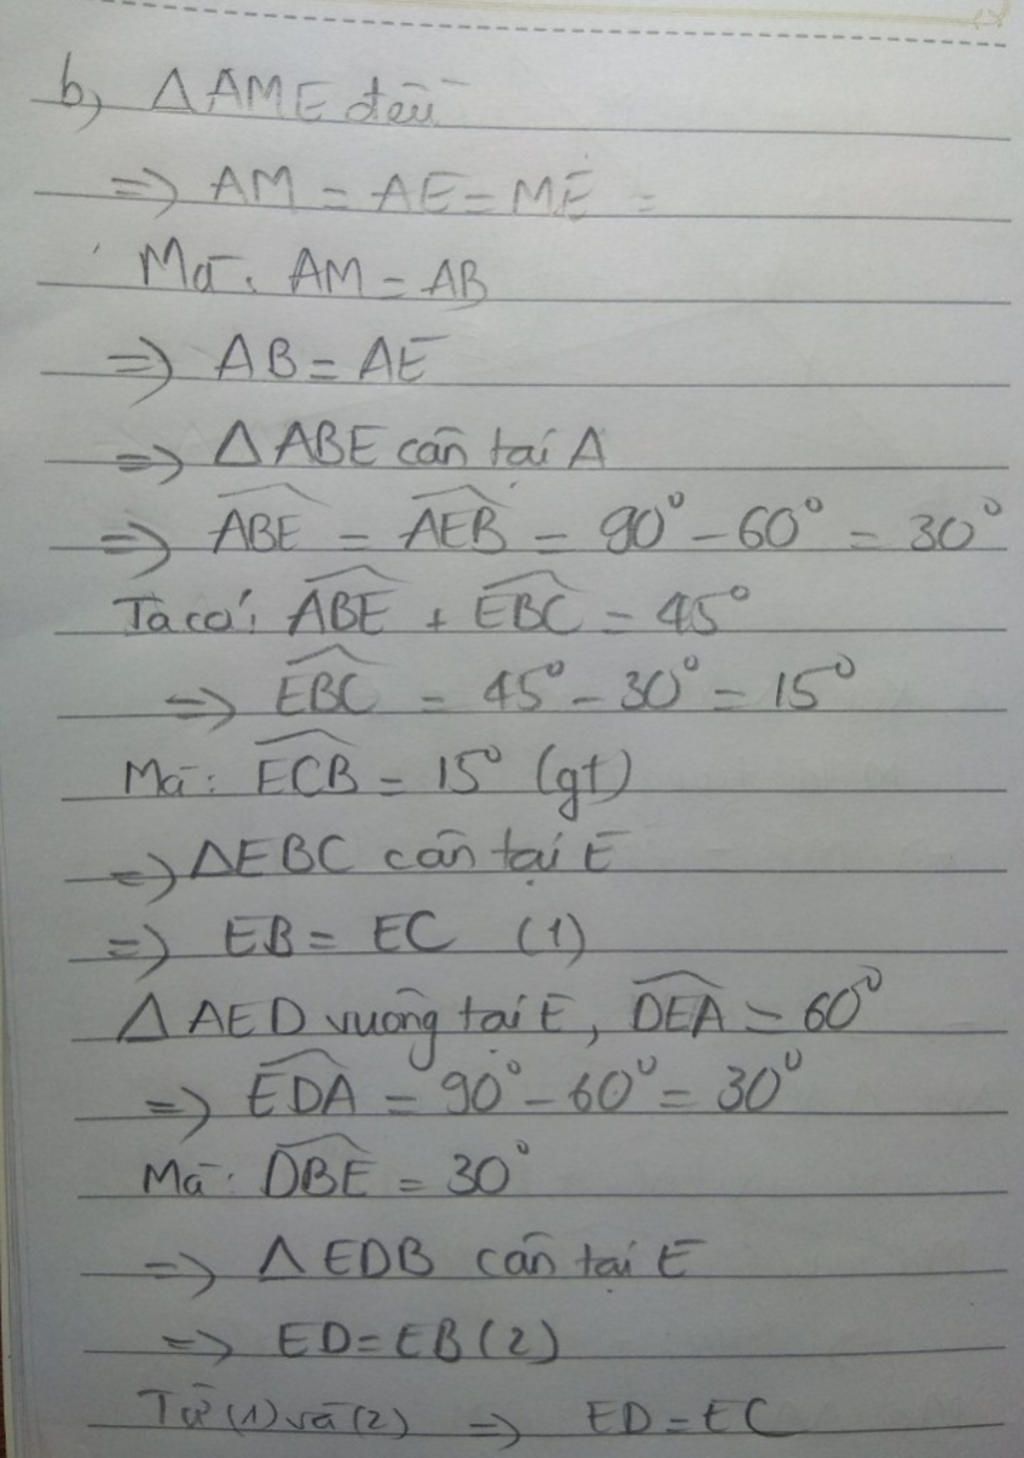 b, ΔAME đều
=> AM = AE = ME =
Mà: AM = AB
=> AB = AE
=> ΔABE cân tại A
=> \widehat{ABE} = \widehat{AEB} = 90° - 60° = 30°
Ta có: \widehat{ABE} + \widehat{EBC} = 45°
=> \widehat{EBC} = 45° - 30° = 15°
Mà: \widehat{ECB} = 15° (gt)
=> ΔEBC cân tại E
=> EB = EC (1)
ΔAED vuông tại E, \widehat{DEA} = 60°
=> \widehat{EDA} = 90° - 60° = 30°
Mà: \widehat{DBE} = 30°
=> ΔEDB cân tại E
=> ED = EB (2)
Từ (1) và (2) => ED = EC